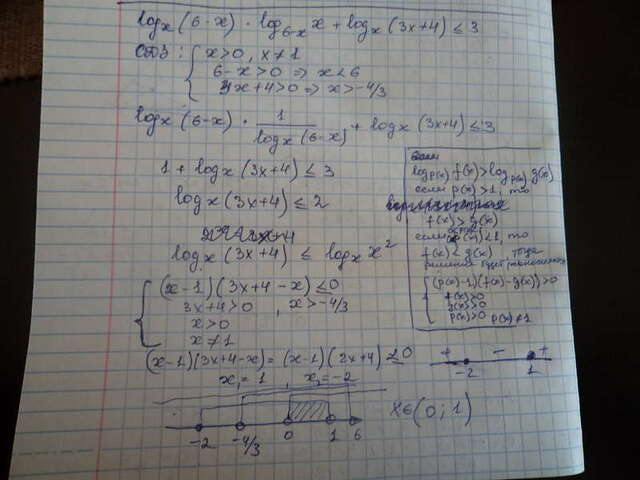 log_x (6-x) · log_{6-x} x + log_x (3x+4) ≤ 3
ОДЗ: { x>0, x≠1
6-x>0 => x<6
3x+4>0 => x>-4/3
log_x (6-x) · 1/log_x (6-x) + log_x (3x+4) ≤ 3
1 + log_x (3x+4) ≤ 3
log_x (3x+4) ≤ 2
log_x (3x+4) ≤ log_x x²
{ (x-1)(3x+4-x) ≤ 0
3x+4>0, x>-4/3
x>0
x≠1
(x-1)(3x+4-x) = (x-1)(2x+4) ≤ 0
x₁=1, x₂=-2
-2 -4/3 0 1 6
x∈(0;1)
log_{p(x)} f(x) > log_{p(x)} g(x)
если p(x)>1, то
f(x) > g(x)
если p(x)<1, то
f(x) < g(x), тогда
решение будет
{ (p(x)-1)(f(x)-g(x))>0
f(x)>0
g(x)>0
p(x)>0 p(x)≠1
+ - +
-2 1